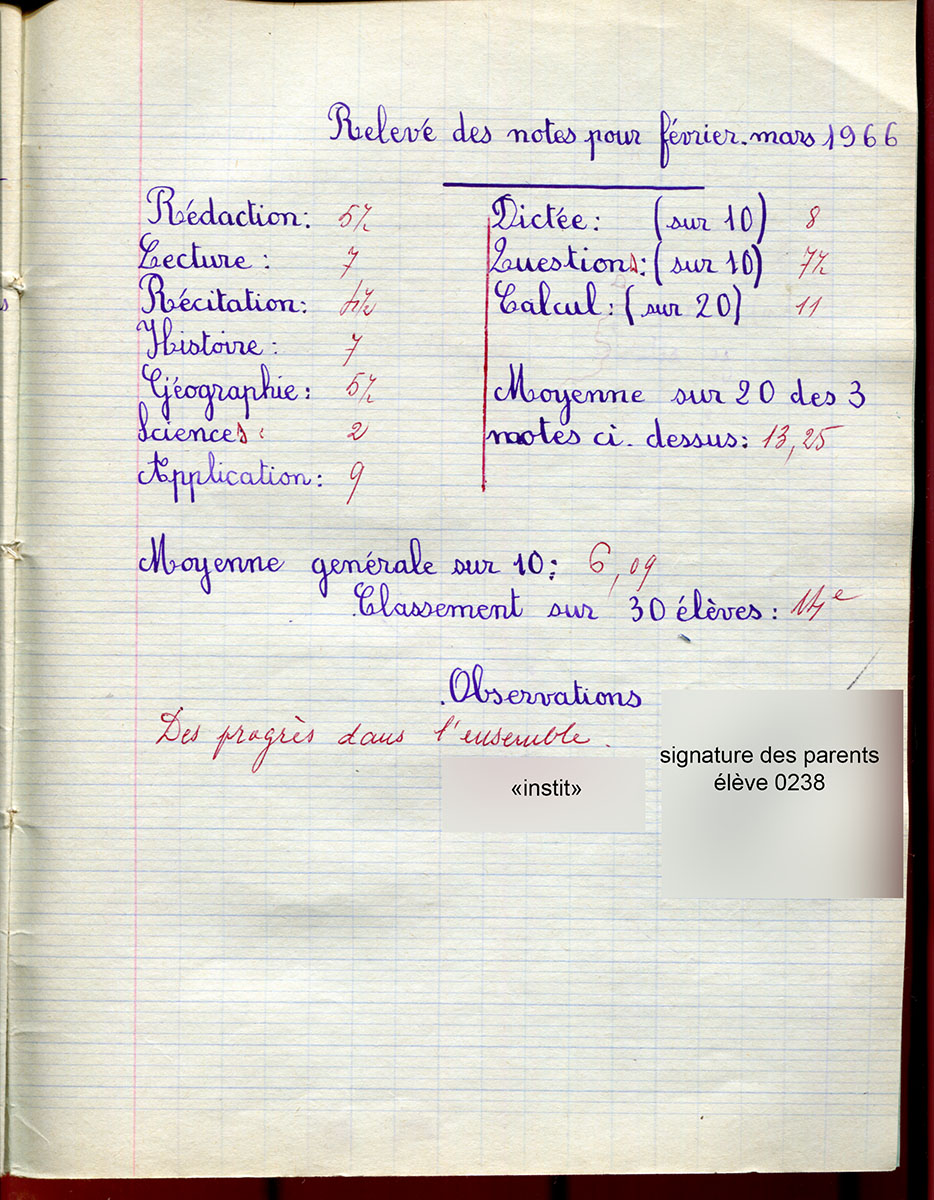 Relevé des notes pour février.mars 1966
Rédaction: 5½
Lecture: 7
Récitation: 4½
Histoire: 7
Géographie: 5½
Sciences: 2
Application: 9
Dictée: (sur 10) 8
Questions: (sur 10) 7½
Calcul: (sur 20) 11
Moyenne sur 20 des 3
notes ci.dessus: 13,25
Moyenne générale sur 10: 6,09
Classement sur 30 élèves: 14e
Observations
Des progrès dans l'ensemble.
«instit»
signature des parents
élève 0238